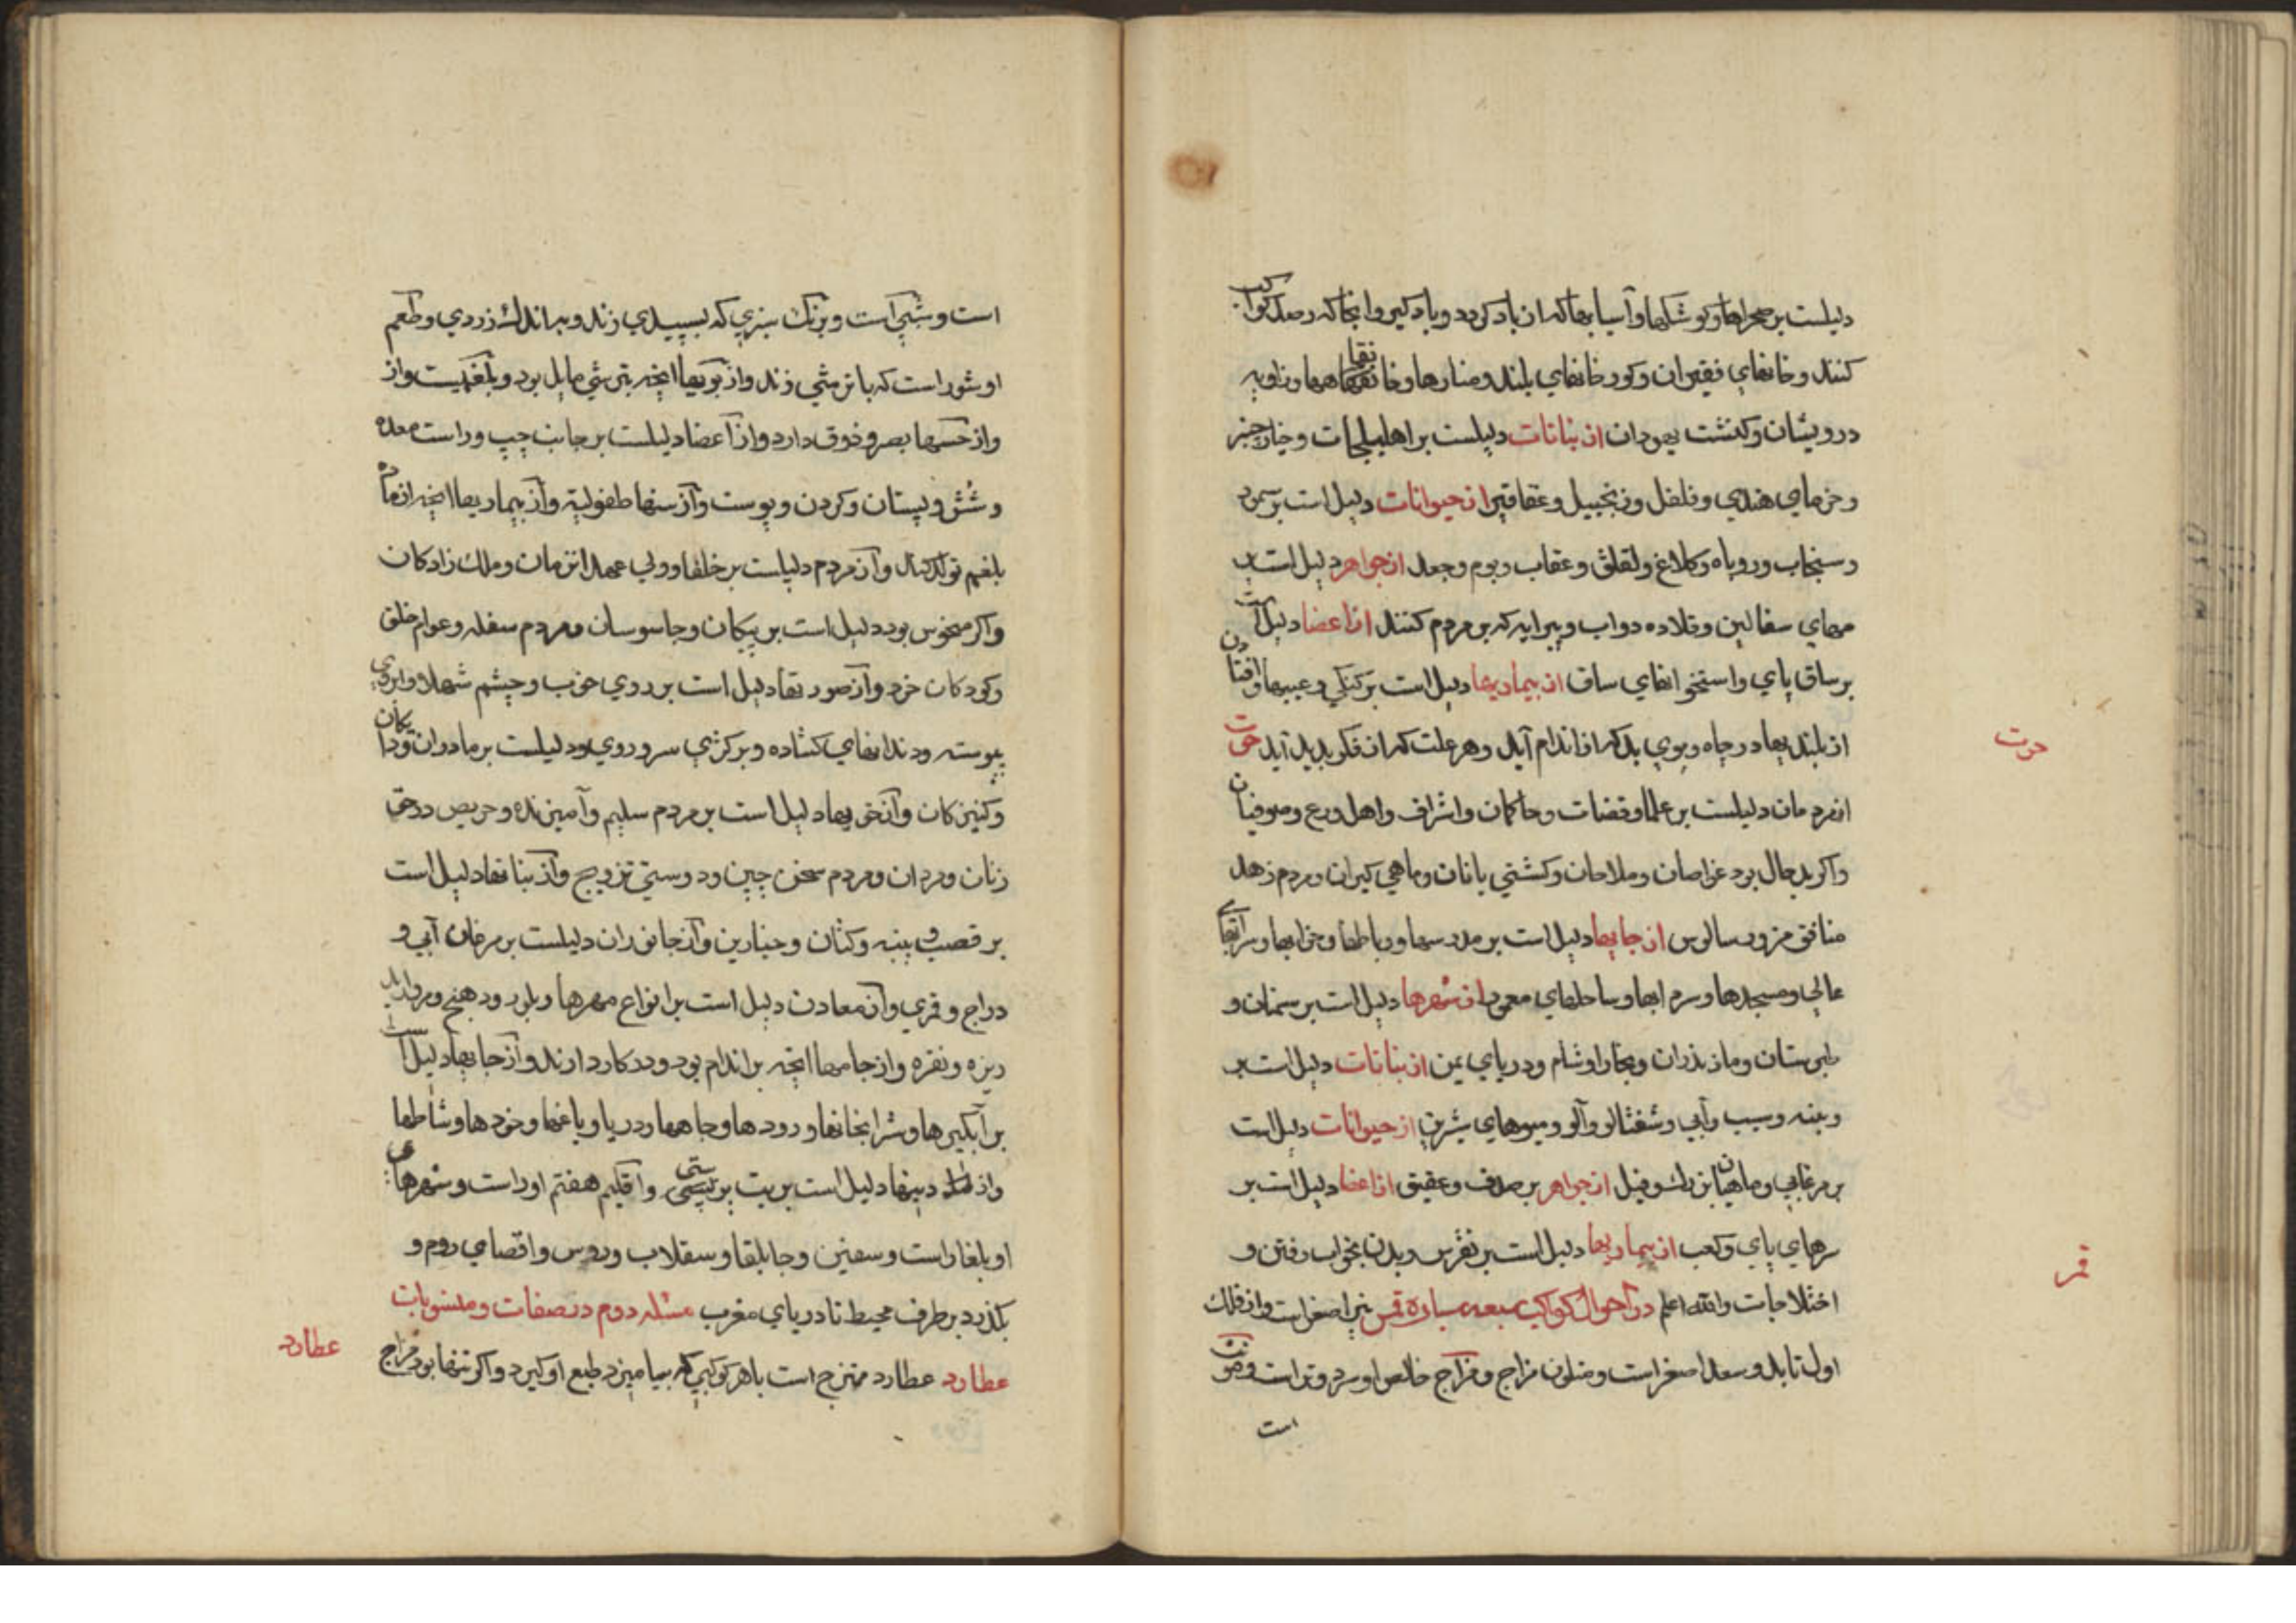 دلیلست بر صحراها و کوشکها و آسیابها که از باد کردد و بادکیر و انجا که رصد کواکب
کنند و خانهای فقیران و کور خانهای بلند و منارها و خانقاهها و زاویه
درویشان و کنشت یهودان از نباتات دلیلست بر اهلیلجات و خیار چنبر
و خرمای هندی و فلفل و زنجبیل و عقاقیر از حیوانات دلیل است بر سمور
و سنجاب و روباه و کلاغ و لقلق و عقاب و بوم و جعل از جواهر دلیل است بر
مهرهای سفالین و قلاده دواب و پیرایه که بر مردم کنند از اعضا دلیل است
بر ساق پای و استخوانهای ساق از بیماریها دلیل است بر کنکی و عیبها و افتادن
از بلندیها در چاه و بوی بد که از اندام آید و هر علت که از فکر پدید آید حوت
از مردمان دلیلست بر علما و قضات و حاکمان و اشراف و اهل ورع و صوفیان
حوت
واکر بدحال بود غواصان و ملاحان و کشتی بانان و ماهی کیران و مردم زهد
منافق مزور سالوس از جایها دلیل است بر مدرسها و رباطها و خرابها و سراهای
عالی و مسجدها و سرابها و ساحلهای معمور از شهرها دلیل است بر سمنان و
طبرستان و مازندران و بخارا و شام و دریای یمن از نباتات دلیل است بر
و پنبه و سیب و آبی و شفتالو و آلو و میوهای شیرین از حیوانات دلیل است
بر مرغابی و ماهیان بزرک و فیل از جواهر بر صدف و عقیق از اعضا دلیل است بر
سرهای پای و کعب از بیماریها دلیل است بر نقرس و بدن بخواب رفتن و
قمر
اختلاجات والله اعلم در احوال کواکب سبعه سیاره قمر نیر اصغر است و از فلک
اول تابد و سعد اصغر است و متلون مزاج و مزاج خالص او سرد و تر است و مونث
است
است و شبی است و برنک سبزی که بسپیدی زند و باندک زردی و طعم
او شور است که با ترشی زند و از بویها انچه بترشی مایل بود و بلغمیست و از
و از حسها بصر و ذوق دارد و از اعضا دلیلست بر جانب چپ و راست معده
و شش و پستان و کردن و پوست و از سنها طفولیة و از بیماریها انچه از ماده
بلغم تولد کند و از مردم دلیلست بر خلفا و ولی عهد از زمان و ملک زادکان
واکر منحوس بود دلیل است بر پیکان و جاسوسان و مردم سفله و عوام خلق
و کودکان خرد و از صورتها دلیل است بر روی خوب و چشم شهلا و ابروی
پیوسته و دندانهای کشاده و بر کژی سر و روی و دلیلست بر مادران و دایکان
و کنیزکان و از خویها دلیل است بر مردم سلیم و آمیزنده و حریص در حق
زنان و مردان و مردم سخن چین و دوستی تزویج و از نباتها دلیل است
بر قصب و پنبه و کتان و خیارین و از جانوران دلیلست بر مرغان آبی و
دراج و قمری و از معادن دلیل است بر انواع مهرها و بلور و دهنج و مروارید
ریزه و نقره و از جامها انچه بر اندام بود و در کار دارند و از جایها دلیل است
بر آبکیرها و شرابخانها و رودها و چاهها و دریا و باغها و خودها و شاطها
و از دینها دلیل است بر بت پرستی و اقلیم هفتم او راست و شهرهای
او بلغار است و سقسین و جابلقا و سقلاب و روس و اقصای روم و
بکذرد بر طرف محیط تا دریای مغرب مسئله دوم در صفات و منسوبات
عطارد
عطارد عطارد ممتزج است با هر کوکبی که بیامیزد طبع او کیرد واکر تنها بود مزاج